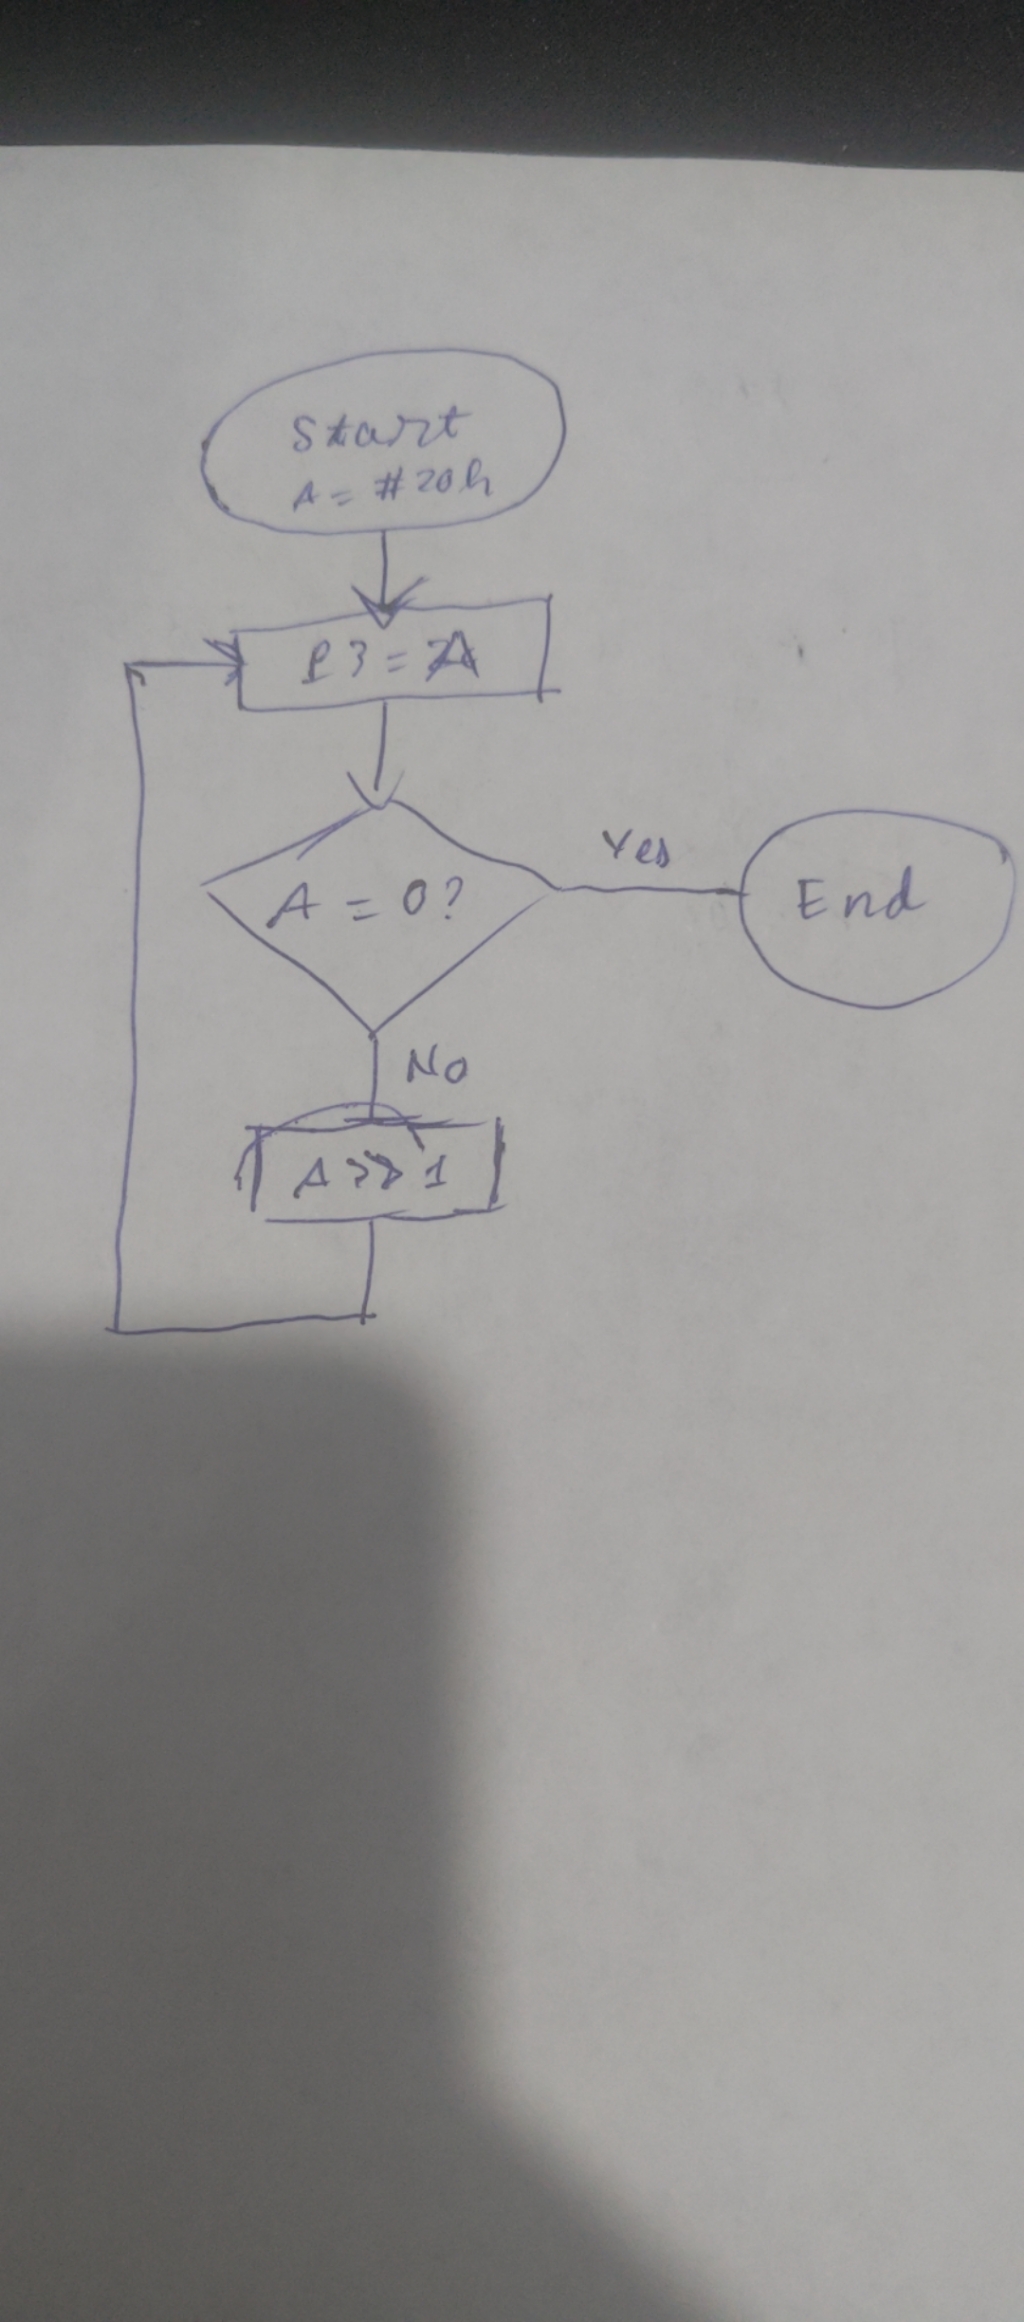 Start
A = #20h
P3 = A
A = 0?
Yes
End
No
A >> 1